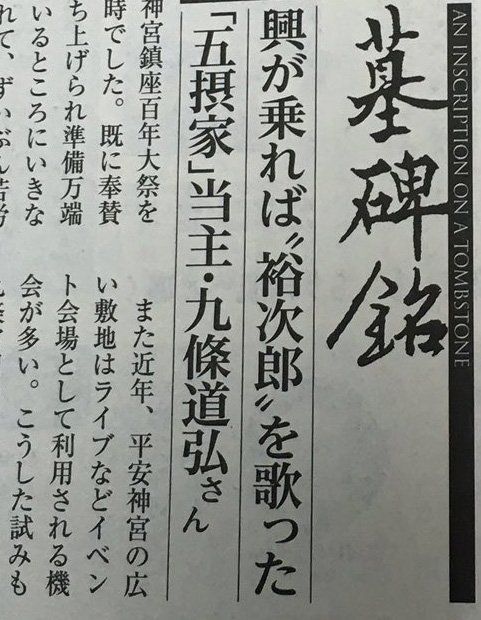 AN INSCRIPTION ON A TOMBSTONE
墓碑銘
興が乗れば〝裕次郎〟を歌った
「五摂家」当主・九條道弘さん
神宮鎮座百年大祭を
時でした。既に奉賛
ち上げられ準備万端
いるところにいきな
れて、ずいぶん苦労
また近年、平安神宮の広
い敷地はライブなどイベン
ト会場として利用される機
会が多い。こうした試みも